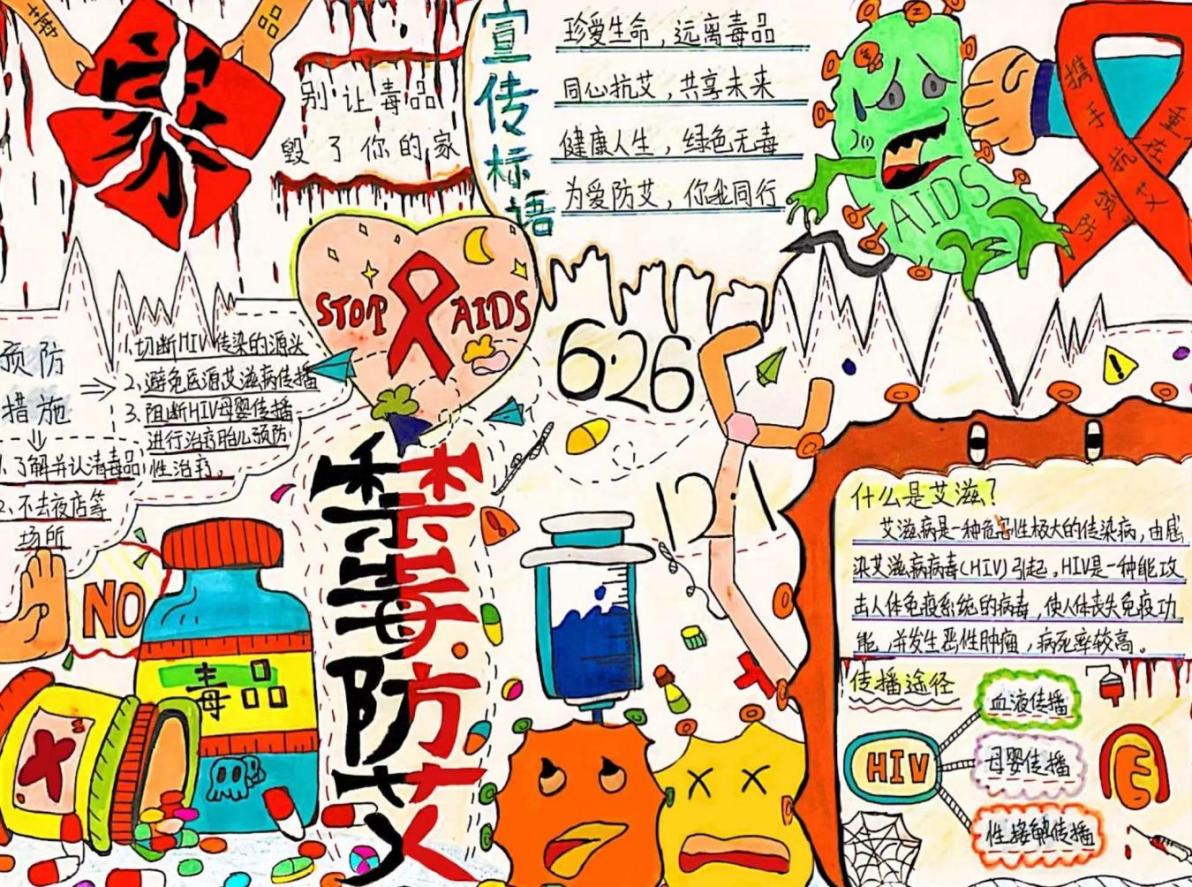 毒
品
家
别让毒品
毁了你的家
宣传标语
珍爱生命，远离毒品
同心抗艾，共享未来
健康人生，绿色无毒
为爱防艾，你我同行
AIDS
携手抗艾
重在预防
STOP AIDS
6·26
12·1
预防
措施
1.切断HIV传染的源头
2.避免医源艾滋病传播
3.阻断HIV母婴传播
进行治疗胎儿预防
性治疗。
1.了解并认清毒品
2.不去夜店等
场所
NO
毒品
禁毒防艾
什么是艾滋？
艾滋病是一种危害性极大的传染病，由感
染艾滋病病毒(HIV)引起，HIV是一种能攻
击人体免疫系统的病毒，使人体丧失免疫功
能，并发生恶性肿瘤，病死率较高。
传播途径
HIV
血液传播
母婴传播
性接触传播